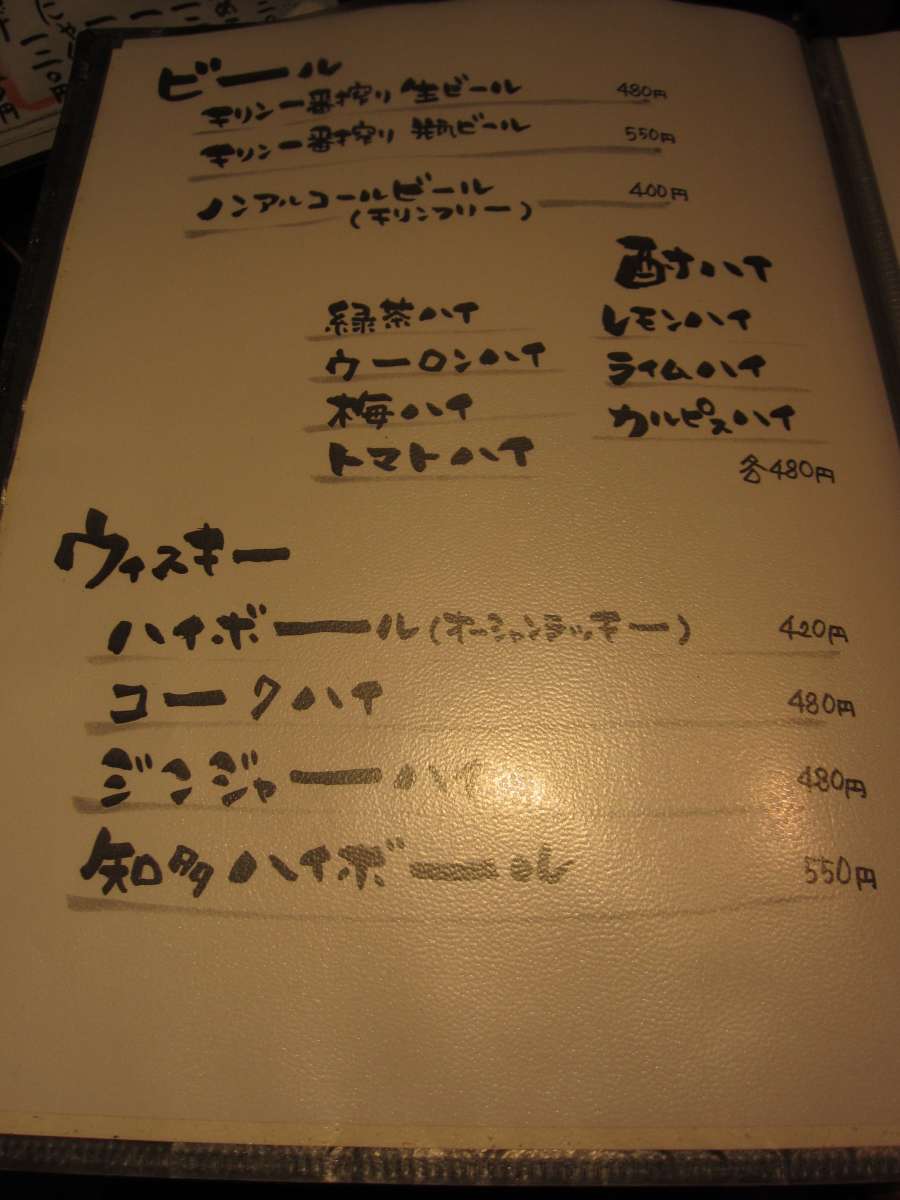 ビール
キリン一番搾り 生ビール 480円
キリン一番搾り 瓶ビール 550円
ノンアルコールビール 400円
(キリンフリー)
酎ハイ
緑茶ハイ レモンハイ
ウーロンハイ ライムハイ
梅ハイ カルピスハイ
トマトハイ
各480円
ウィスキー
ハイボール(オーシャンラッキー) 420円
コークハイ 480円
ジンジャーハイ 480円
知多ハイボール 550円